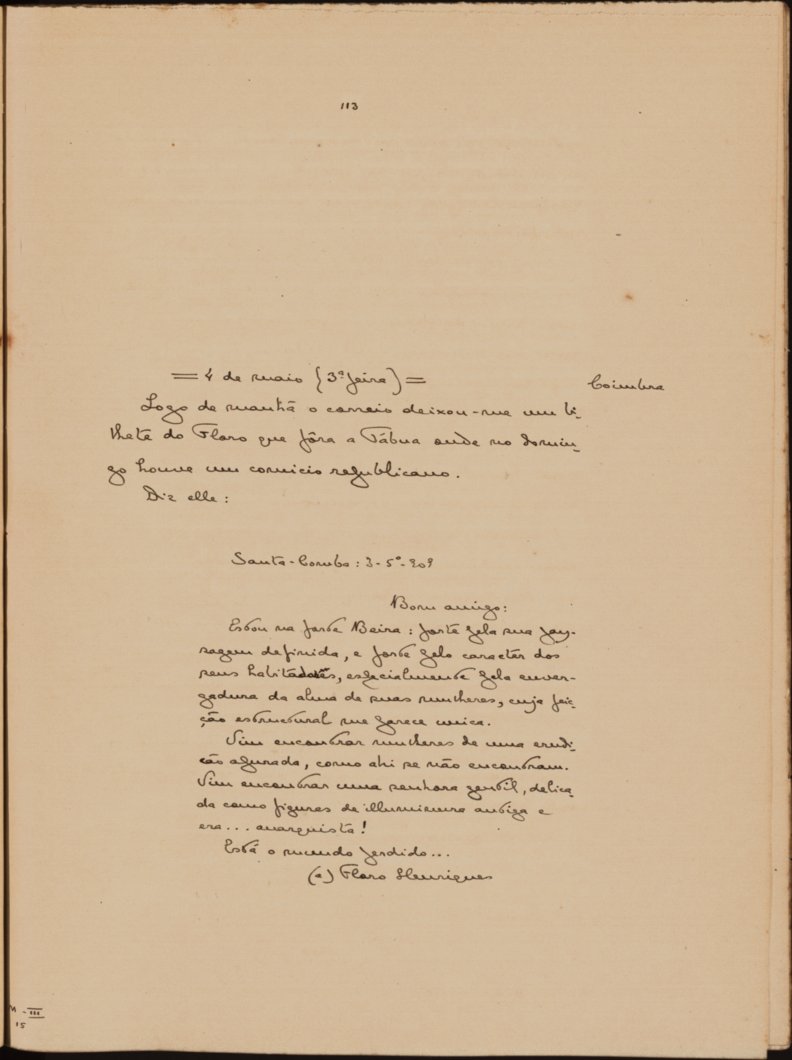 113
= 4 de maio (3ª feira) = Coimbra
Logo de manhã o correio deixou-me um bi-
lhete do Floro que fôra a Tábua onde no domin-
go houve um comicio republicano.
Diz elle:
Santa-Comba: 3-5º-909
Bom amigo:
Estou na forte Beira: forte pela sua pay-
sagem definida, e forte pelo caracter dos
seus habitadores, especialmente pela enver-
gadura da alma de suas mulheres, cuja fei-
ção estructural me parece unica.
Vim encontrar mulheres de uma erudi-
ção apurada, como ahi se não encontram.
Vim encontrar uma senhora gentil, delica-
da como figuras de illuminura antiga e
era... anarquista!
Está o mundo perdido...
(a) Floro Henriques
M - III
15